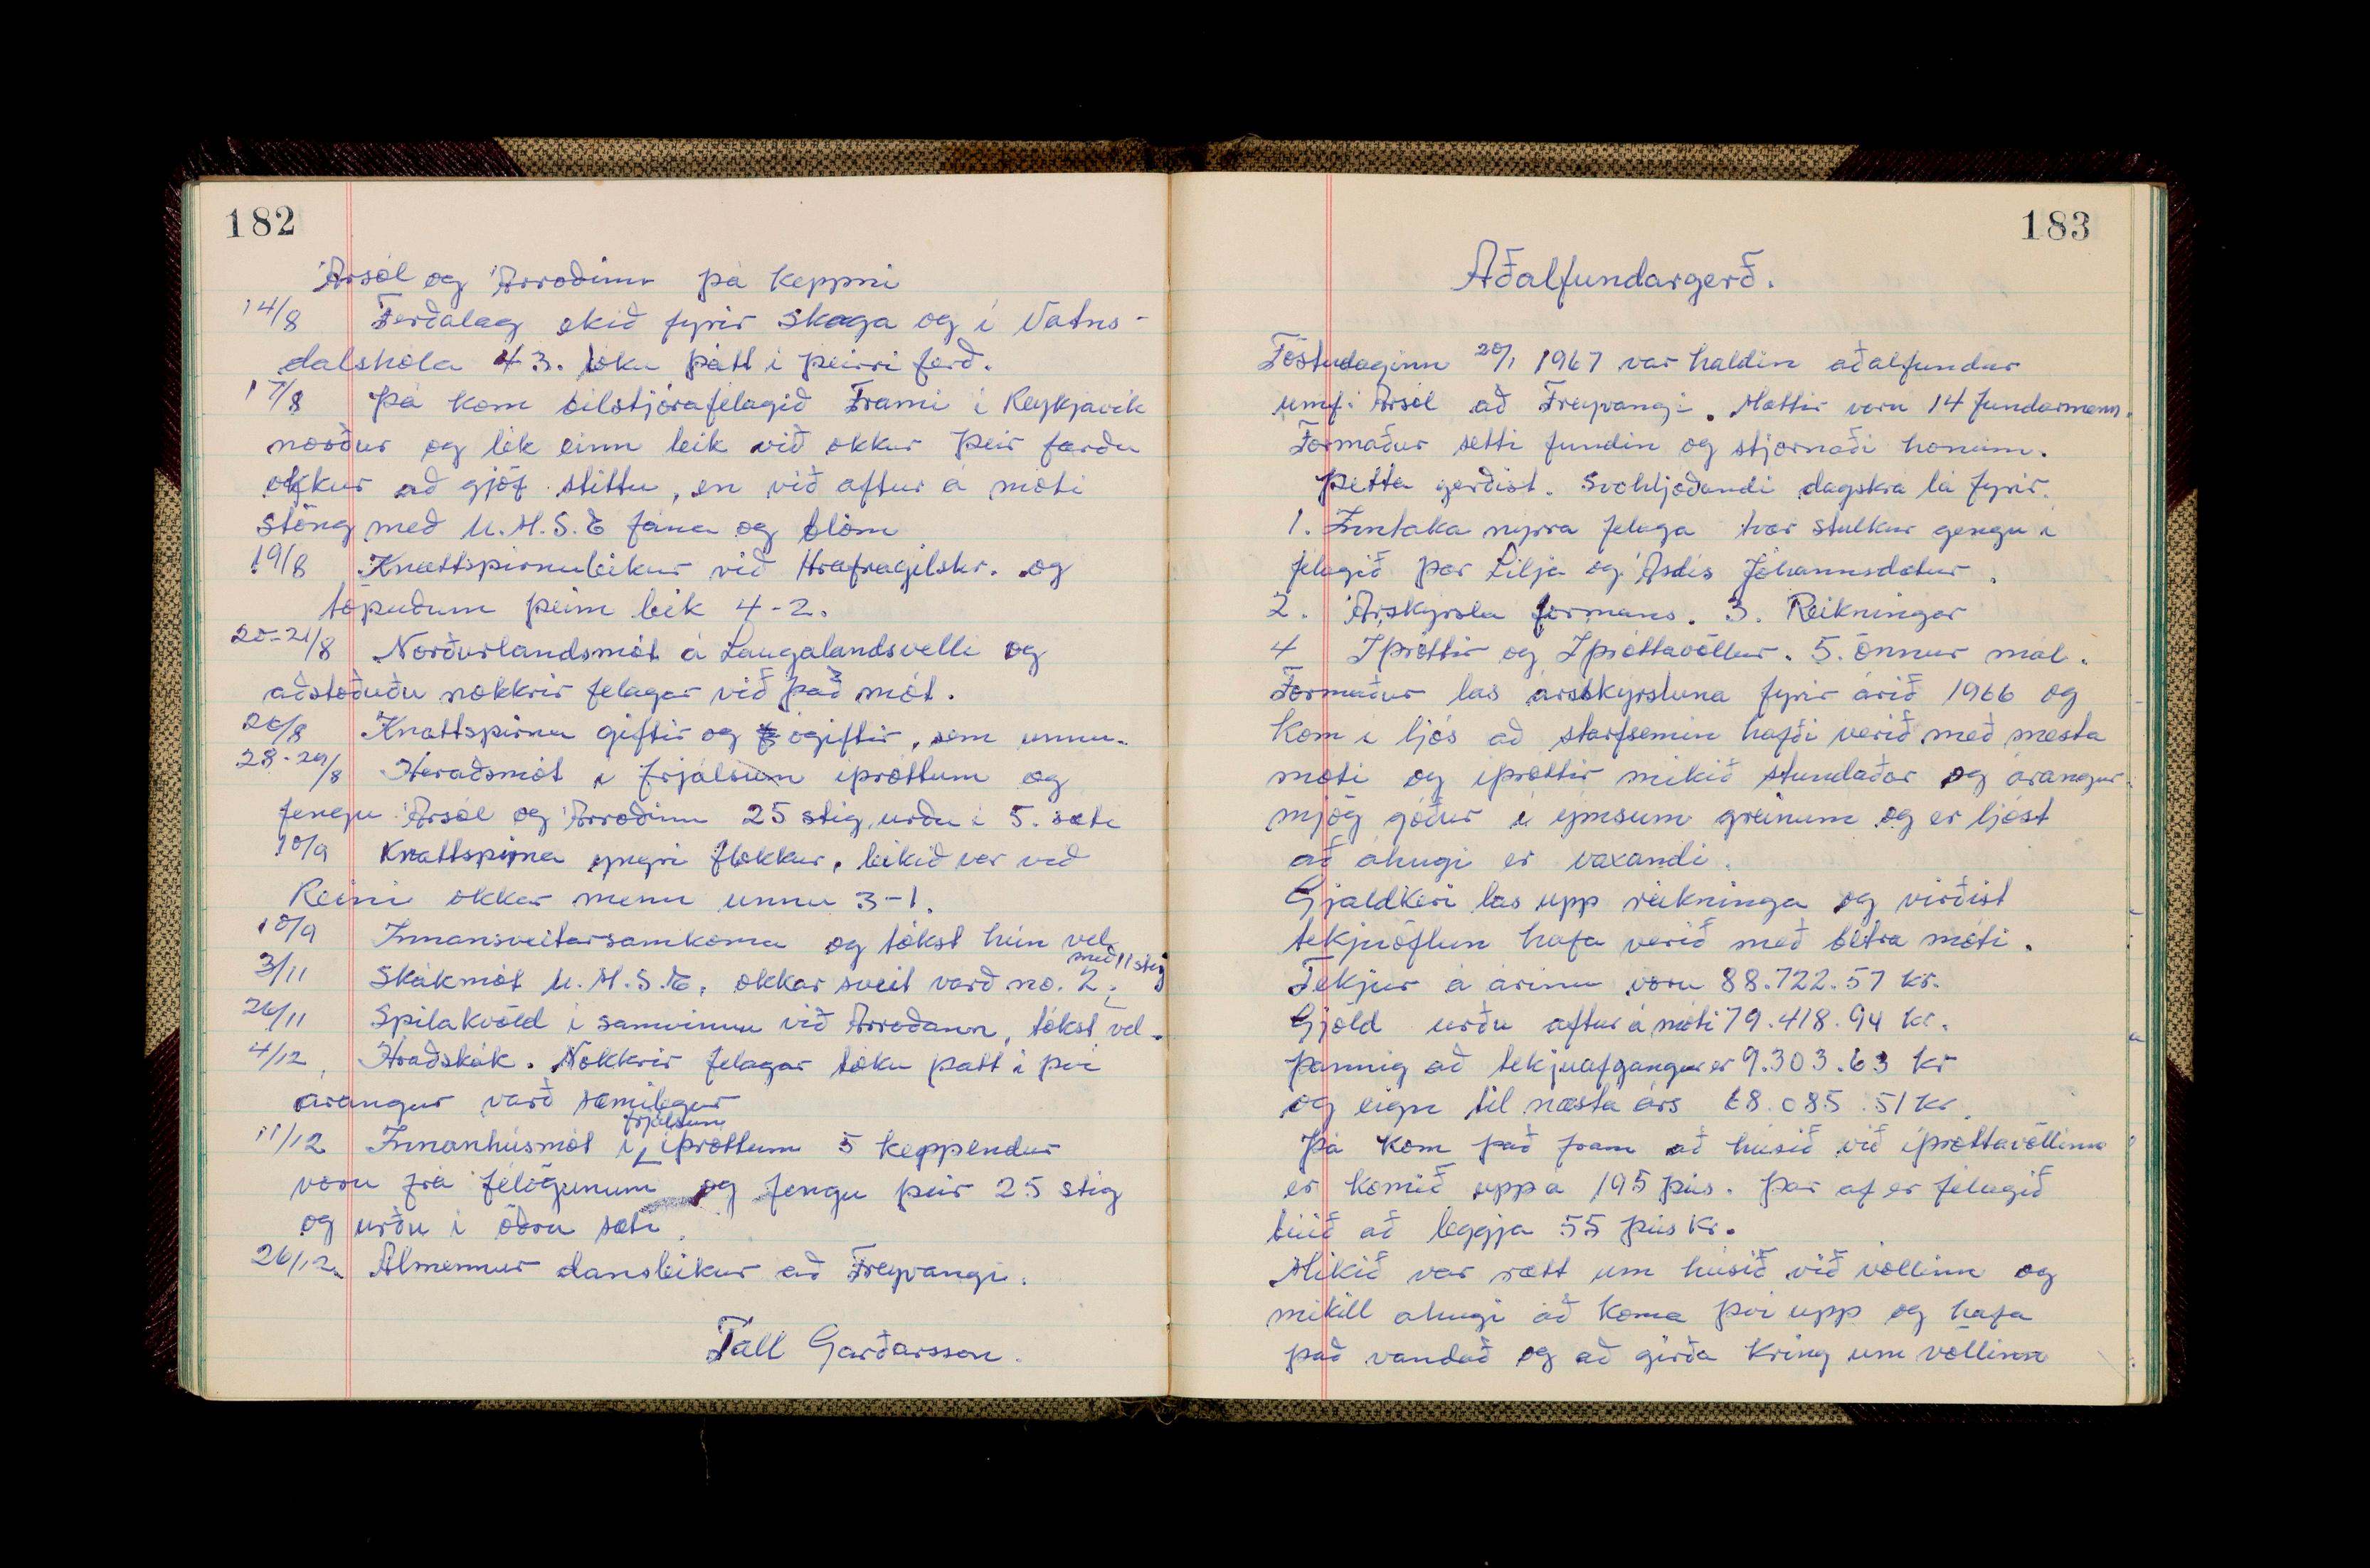 182
Ársól og Árroðinn þá keppni
14/8 Ferðalag ekið fyrir Skaga og í Vatns-
dalshóla 43. tóku þátt í þeirri ferð.
17/8 Þá kom bílstjórafélagið Frami í Reykjavík
norður og lék einn leik við okkur þeir færðu
okkur að gjöf stittu, en við aftur á móti
stöng með U.M.S.E fána og blóm
19/8 Knattspirnuleikur við Hrafnagilshr. og
töpuðum þeim leik 4-2.
20-21/8 Norðurlandsmót á Laugalandsvelli og
aðstoðuðu nokkrir felagar við það mót.
26/8 Knattspirna giftir og ógiftir, sem unnu.
28-29/8 Héraðsmót í frjálsum íþróttum og
fengu Ársól og Árroðinn 25 stig, urðu í 5. sæti
10/9 Knattspirna yngri flokkur, leikið var við
Reini okkar menn unnu 3-1.
10/9 Innansveitarsamkoma og tókst hún vel.
3/11 Skákmót U.M.S.E, okkar sveit varð no. 2, með 11 stig
26/11 Spilakvöld í samvinnu við Árroðann, tókst vel.
4/12 Hraðskák. Nokkrir félagar tóku þatt í því
árangur varð sæmilegur
11/12 Innanhúsmót í frjálsum íþróttum 5 keppendur
voru frá félögunum og fengu þeir 25 stig
og urðu í öðru sæti.
26/12. Almennur dansleikur að Freyvangi.
Páll Garðarsson.
183
Aðalfundargerð.
Föstudaginn 20/1 1967 var haldin aðalfundur
umf. Ársól að Freyvangi. Mættir voru 14 fundarmenn.
Formaður setti fundin og stjórnaði honum.
Þetta gerðist. Svohljóðandi dagskrá lá fyrir.
1. Inntaka nyrra félaga tvær stulkur gengu í
félagið þær Lilja og Ásdís Jóhannsdætur.
2. Árskyrsla formans. 3. Reikningar
4 Iþróttir og Iþróttavöllur. 5. önnur mál.
Formaður las ársskýrsluna fyrir árið 1966 og
kom í ljós að starfsemin hafði verið með mesta
móti og íþróttir mikið stundaðar og árangur
mjög góður í ymsum greinum og er ljóst
að áhugi er vaxandi.
Gjaldkeri las upp reikninga og virðist
tekjuöflun hafa verið með betra móti.
Tekjur á árinu voru 88.722.57 kr.
Gjöld urðu aftur á móti 79.418.94 kr.
þannig að tekjuafgangur er 9.303.63 kr
og eign til næsta árs 68.085.51 kr.
Þá kom það fram að húsið við íþróttavöllinn
er komið uppá 195 þús. þar af er félagið
búið að leggja 55 þús kr.
Mikið var rætt um húsið við völlinn og
mikill áhugi að koma því upp og hafa
það vandað og að girða kring um völlinn